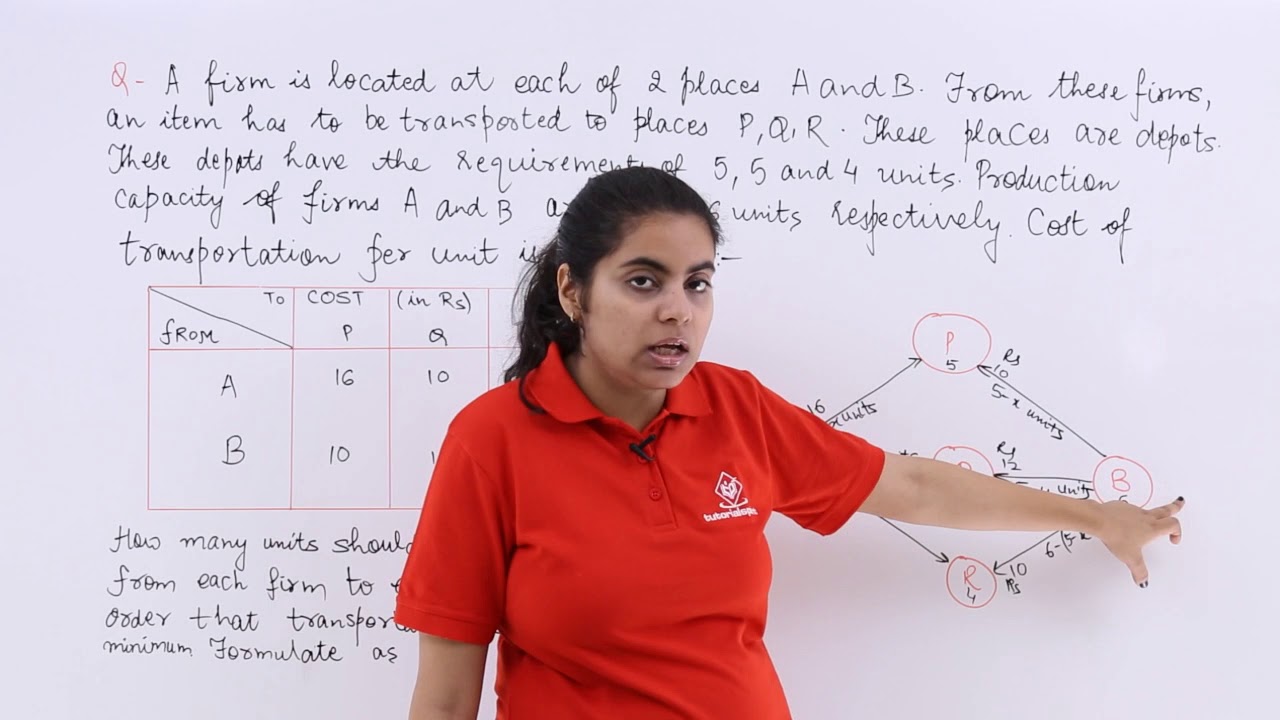 Q- A firm is located at each of 2 places A and B. From these firms,
an item has to be transported to places P, Q, R. These places are depots.
These depots have the requirement of 5, 5 and 4 units. Production
capacity of firms A and B 6 units respectively. Cost of
transportation per unit is :-
TO COST (in Rs)
FROM P Q
A 16 10
B 10
How many units should
from each firm to
order that
minimum. Formulate as
P
5
Rs
10
5-x units
16
x units
Rs
12
units
B
6-(5-x
10
Rs
R
4
tutorialspoint